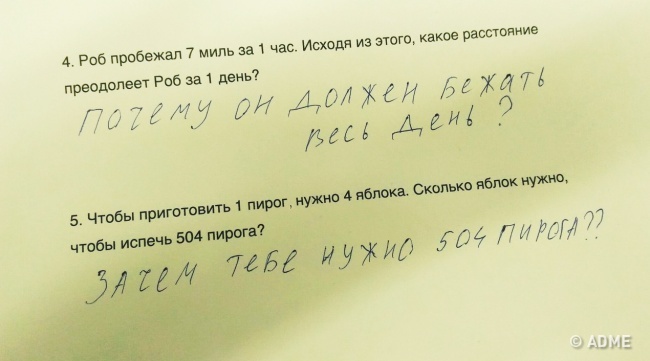 4. Роб пробежал 7 миль за 1 час. Исходя из этого, какое расстояние
преодолеет Роб за 1 день?
ПОЧЕМУ ОН ДОЛЖЕН БЕЖАТЬ
ВЕСЬ ДЕНЬ ?
5. Чтобы приготовить 1 пирог, нужно 4 яблока. Сколько яблок нужно,
чтобы испечь 504 пирога?
ЗАЧЕМ ТЕБЕ НУЖНО 504 ПИРОГА??
© ADME